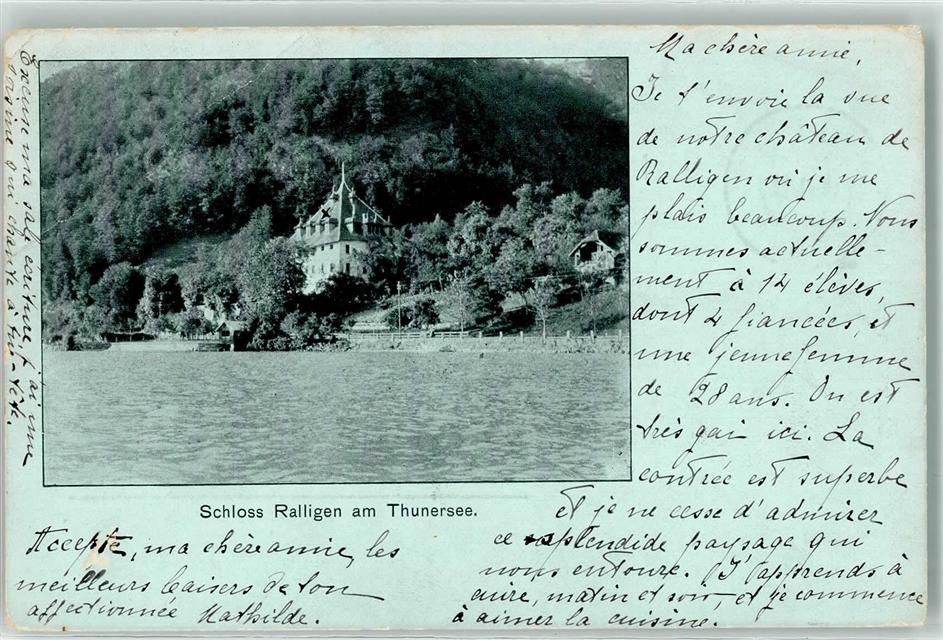 Ma chère amie,
Je t'envoie la vue
de notre château de
Ralligen où je me
plais beaucoup. Nous
sommes actuelle-
ment à 14 élèves,
dont 4 fiancées, et
une jeune femme
de 28 ans. On est
très gai ici. La
contrée est superbe
et je ne cesse d'admirer
ce splendide paysage qui
nous entoure. J'apprends à
cuire, matin et soir, et je commence
à aimer la cuisine.
Schloss Ralligen am Thunersee.
Accepte, ma chère amie, les
meilleurs baisers de ton
affectionnée Mathilde.
Excuse ma sale écriture, j'ai une
voisine qui chante à tue-tête.